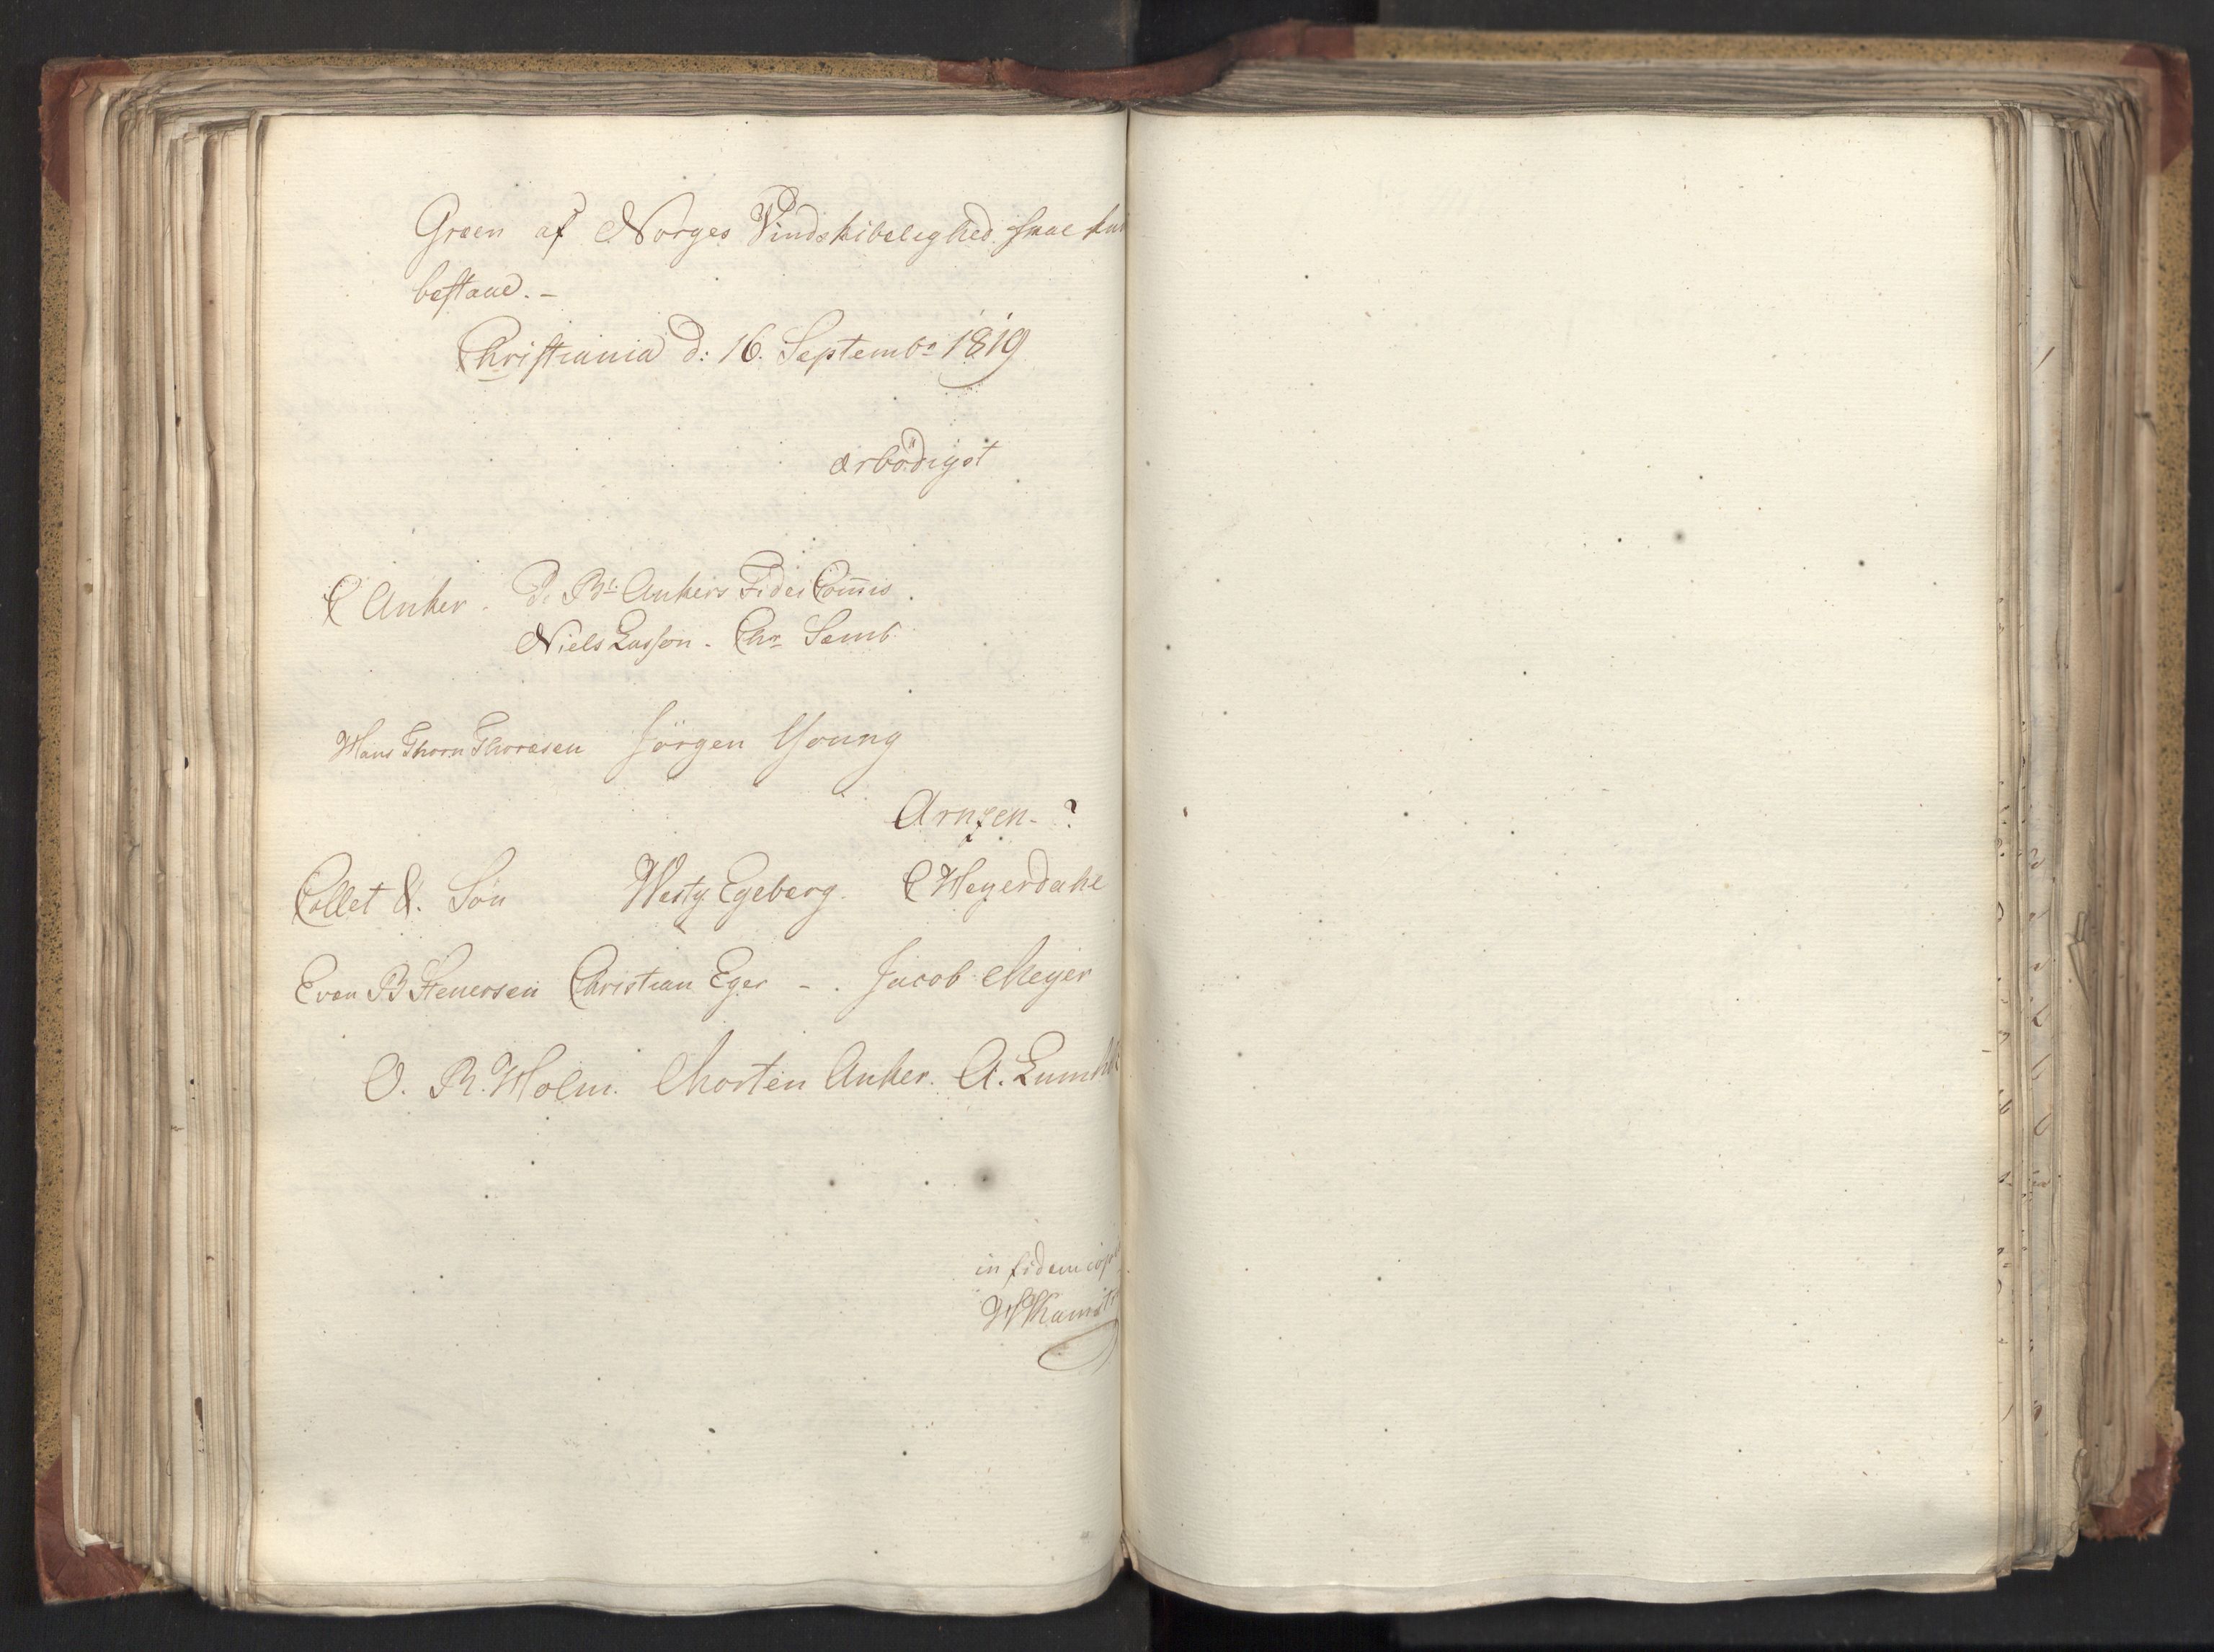 Green af Norges Vindskibelighed skal kun
bestaae. -
Christiania d: 16. Septembr 1819
ærbödigst
C Anker. P. Bt Ankers Fidei Com̄is.
Niels Lasson. Chr Semb
Hans Thorn Thoresen Jörgen Young
Arnzen - ?
Collet & Sön Westy Egeberg. C Heyerdahl
Even B Steversen Christian Eger - . Jacob Meyer
O. R. Holm. Morten Anker. A.
in fidem